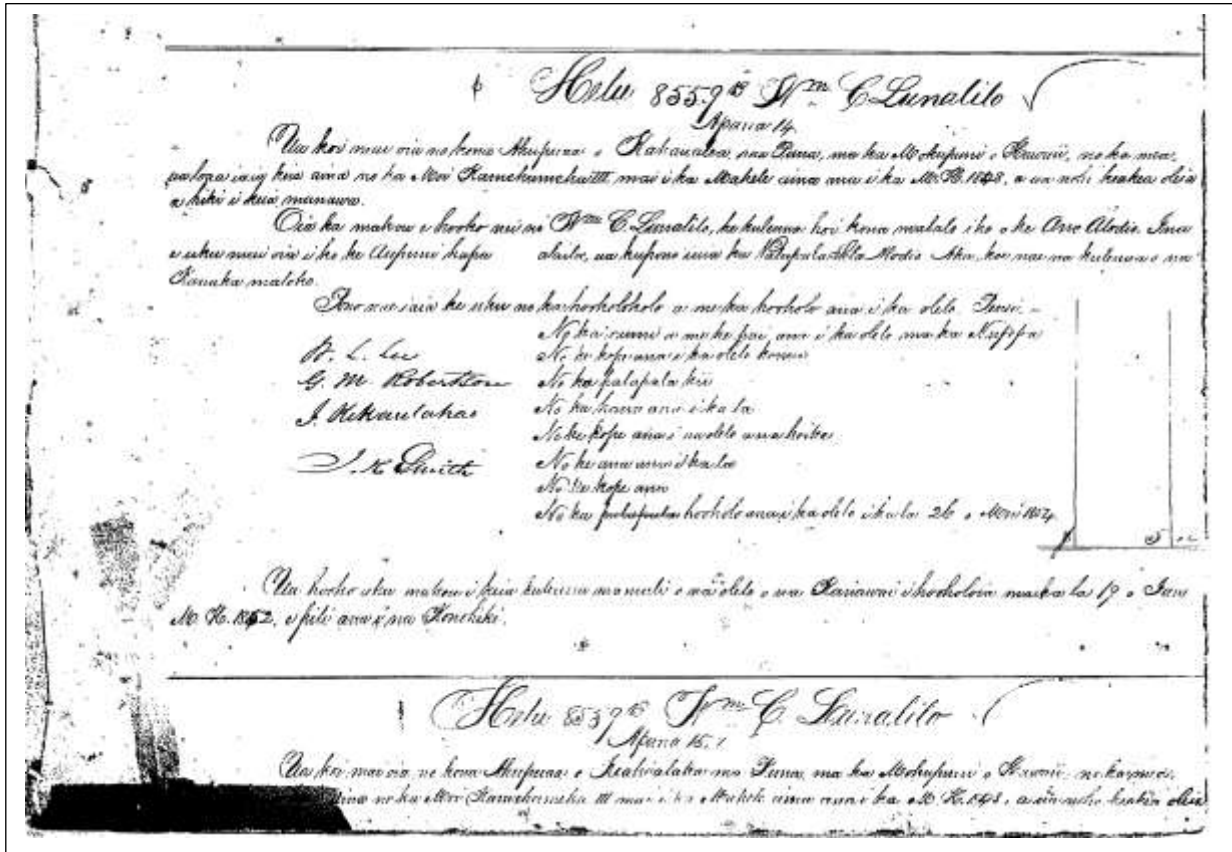 Helu 8559 B Wm C Lunalilo
Apana 14.
Ua koi mai oia no kona Ahupuaa o Kahaualea, ma Puna, ma ka Mokupuni o Hawaii, no ka mea,
ua loaa ia ia keia aina no ka Moi Kamehameha III, mai i ka Mahele aina ana i ka M.H. 1848, a ua noho keakea ole ia
a hiki i keia manawa.
Oia ka makou e hooko nei no Wm C. Lunalilo, he kuleana hoi kona malalo iho o ke Ano Alodio. Ina
e uku mai oia i ko ke Aupuni hapa alaila, ua kupono ia ia ka Palapala Sila Alodio. Aka, koe nae na kuleana o na
Kanaka maloko.
Eono nae ia ia ke uku no ka hookolokolo a me ka hooholo ana i ka olelo. Penei. -
No ka a me ke pai ana i ka olelo ma ka Nupepa
W. L. Lee No ke kope ana i ka olelo
G. M. Robertson No ka palapala kii
J. Kekaulahao No ka hana ana i ka la
No ke kope ana i na olelo a na hoike
J. K. Smith No ke ana ana i ka loa
No ke kope ana
No ka palapala hooholo ana i ka olelo i ka la 26 o Mei 1854.
5
Ua hooko aku makou i keia kuleana mamuli o na olelo o na Kanawai i hooholoia ma ka la 19 o Iune
M. H. 1852, e pili ana i na Konohiki.
Helu 8559 B Wm C. Lunalilo
Apana 15.
Ua koi mai oia no kona Ahupuaa o Keahialaka ma Puna, ma ka Mokupuni o Hawaii, no ka mea,
aina no ka Moi Kamehameha III mai i ka Mahele aina ana i ka M. H. 1848, a ua noho keakea ole ia